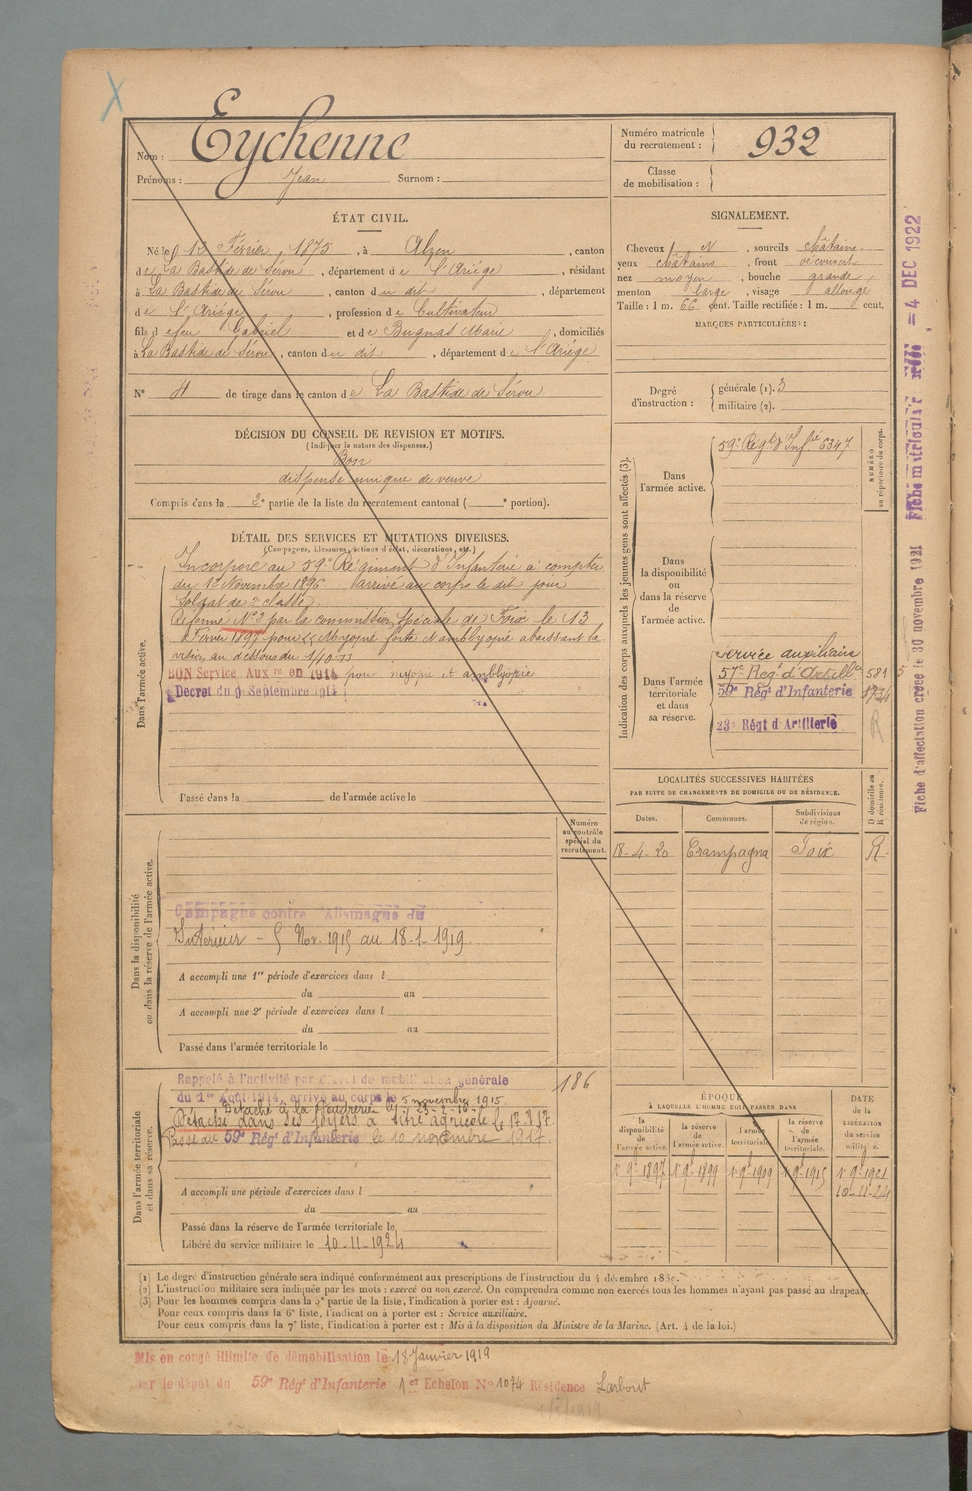 Nom : Eychenne
Prénoms : Jean Surnom :
Numéro matricule du recrutement : 932
Classe de mobilisation :
ÉTAT CIVIL.
Né le 12 Février 1875, à Alzen, canton
de La Bastide de Sérou, département de l'Ariége, résidant
à La Bastide de Sérou, canton du dit, département
de l'Ariége, profession de Cultivateur
fils de feu Gabriel et de Bugnas Marie, domiciliés
à La Bastide de Sérou, canton du dit, département de l'Ariége
N° 4 de tirage dans le canton de La Bastide de Sérou
SIGNALEMENT.
Cheveux N, sourcils châtains
yeux châtains, front découvert
nez moyen, bouche grande
menton large, visage allongé
Taille : 1 m. 66 cent. Taille rectifiée : 1 m. cent.
MARQUES PARTICULIÈRES :
Degré d'instruction : générale (1). 3
militaire (2).
DÉCISION DU CONSEIL DE REVISION ET MOTIFS.
(Indiquer la nature des dispenses.)
Bon
dispensé unique de veuve
Compris dans la 2e partie de la liste du recrutement cantonal ( e portion).
DÉTAIL DES SERVICES ET MUTATIONS DIVERSES.
(Campagnes, blessures, actions d'éclat, décorations, etc.)
Dans l'armée active.
Incorporé au 59e Régiment d'Infanterie à compter
du 1er Novembre 1896 arrivé au corps le dit jour
Soldat de 2e classe.
Réformé N°2 par la commission spéciale de Foix le 13
Février 1897 pour Myopie forte et amblyopie abaissant la
vision au dessous du 1/10
BON Service Aux re en 1914 pour myopie et amblyopie
Decret du 9 Septembre 1914
Passé dans la de l'armée active le
Indication des corps auxquels les jeunes gens sont affectés (3).
NUMÉRO au répertoire du corps.
Dans l'armée active.
59e Régt d'Infie 6347
Dans la disponibilité ou dans la réserve de l'armée active.
Dans l'armée territoriale et dans sa réserve.
Service auxiliaire
57e Reg' d'Artille 5815
59e Rég' d'Infanterie 1734
23e Régt d'Artillerie R
LOCALITÉS SUCCESSIVES HABITÉES
PAR SUITE DE CHANGEMENTS DE DOMICILE OU DE RÉSIDENCE.
Dates. Communes. Subdivisions de région. D domicile ou R résidence.
18-4-20 Crampagna Foix R
Numéro au contrôle spécial du recrutement.
Dans la disponibilité ou dans la réserve de l'armée active.
Campagne contre l'Allemagne du
Intérieur - 5 Nov. 1915 au 18-1-1919.
A accompli une 1re période d'exercices dans l
du au
A accompli une 2e période d'exercices dans l
du au
Passé dans l'armée territoriale le
Dans l'armée territoriale et dans sa réserve.
Rappelé à l'activité par décret de mobilisation générale 186
du 1er Août 1914, arrivé au corps le 5 novembre 1915.
Détaché à la Poudrerie
Détaché dans ses foyers à titre agricole le 17.3.17.
Passé au 59e Rég' d'Infanterie le 10 novembre 1917.
A accompli une période d'exercices dans l
du au
Passé dans la réserve de l'armée territoriale le
Libéré du service militaire le 10-11-1924
ÉPOQUE
À LAQUELLE L'HOMME DOIT PASSER DANS
DATE de la LIBÉRATION du service militaire.
la disponibilité de l'armée active. la réserve de l'armée active. l'armée territoriale. la réserve de l'armée territoriale.
1r 9bre 1897 1r 9bre 1899 1r 9bre 1909 1r 9bre 1915 1r 9bre 1921
10-11-24
(1) Le degré d'instruction générale sera indiqué conformément aux prescriptions de l'instruction du 4 décembre
(2) L'instruction militaire sera indiquée par les mots : exercé ou non exercé. On comprendra comme non exercés tous les hommes n'ayant pas passé au drapeau.
(3) Pour les hommes compris dans la 5e partie de la liste, l'indication à porter est : Ajourné.
Pour ceux compris dans la 6e liste, l'indication à porter est : Service auxiliaire.
Pour ceux compris dans la 7e liste, l'indication à porter est : Mis à la disposition du Ministre de la Marine. (Art. 4 de la loi.)
Mis en congé illimité de démobilisation le 18 Janvier 1919
par le dépôt du 59e Rég' d'Infanterie 1er Echelon N° 1074 Résidence Larbont
Fiche d'affectation créée le 30 novembre 1921 Fiche matricule créée = 4 DEC 1922